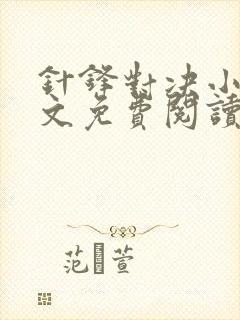 針鋒對決小
文免費閱讀
范萱